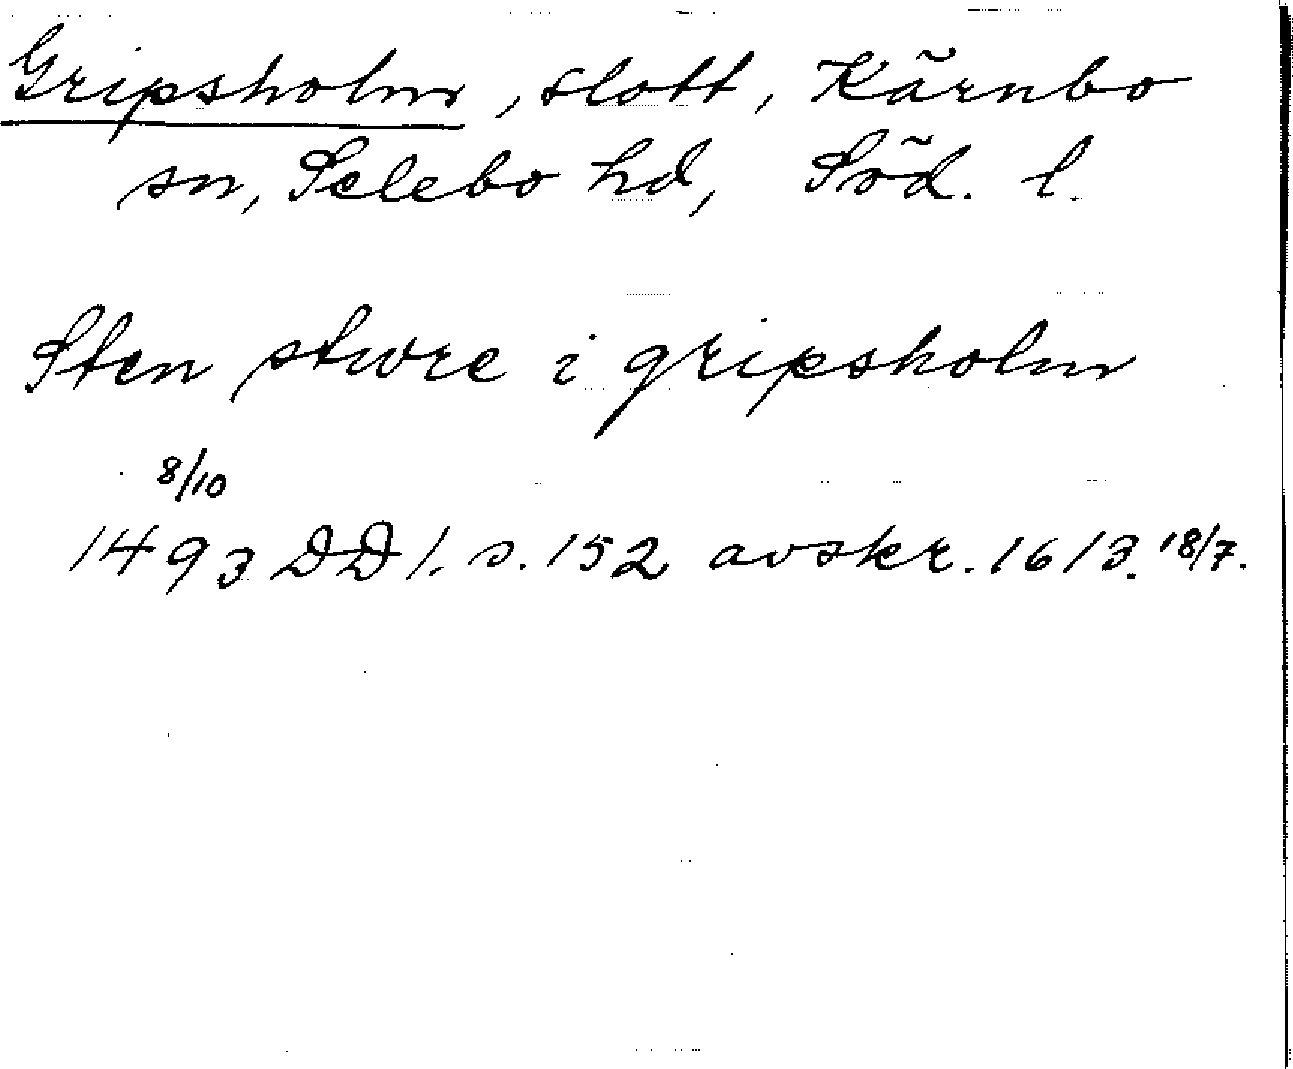 Gripsholm, slott, Kärnbo
sn, Selebo hd, Söd. l.
Sten stwre i gripsholm
8/10
1493 DD 1. s. 152 avskr. 1613. 18/7.